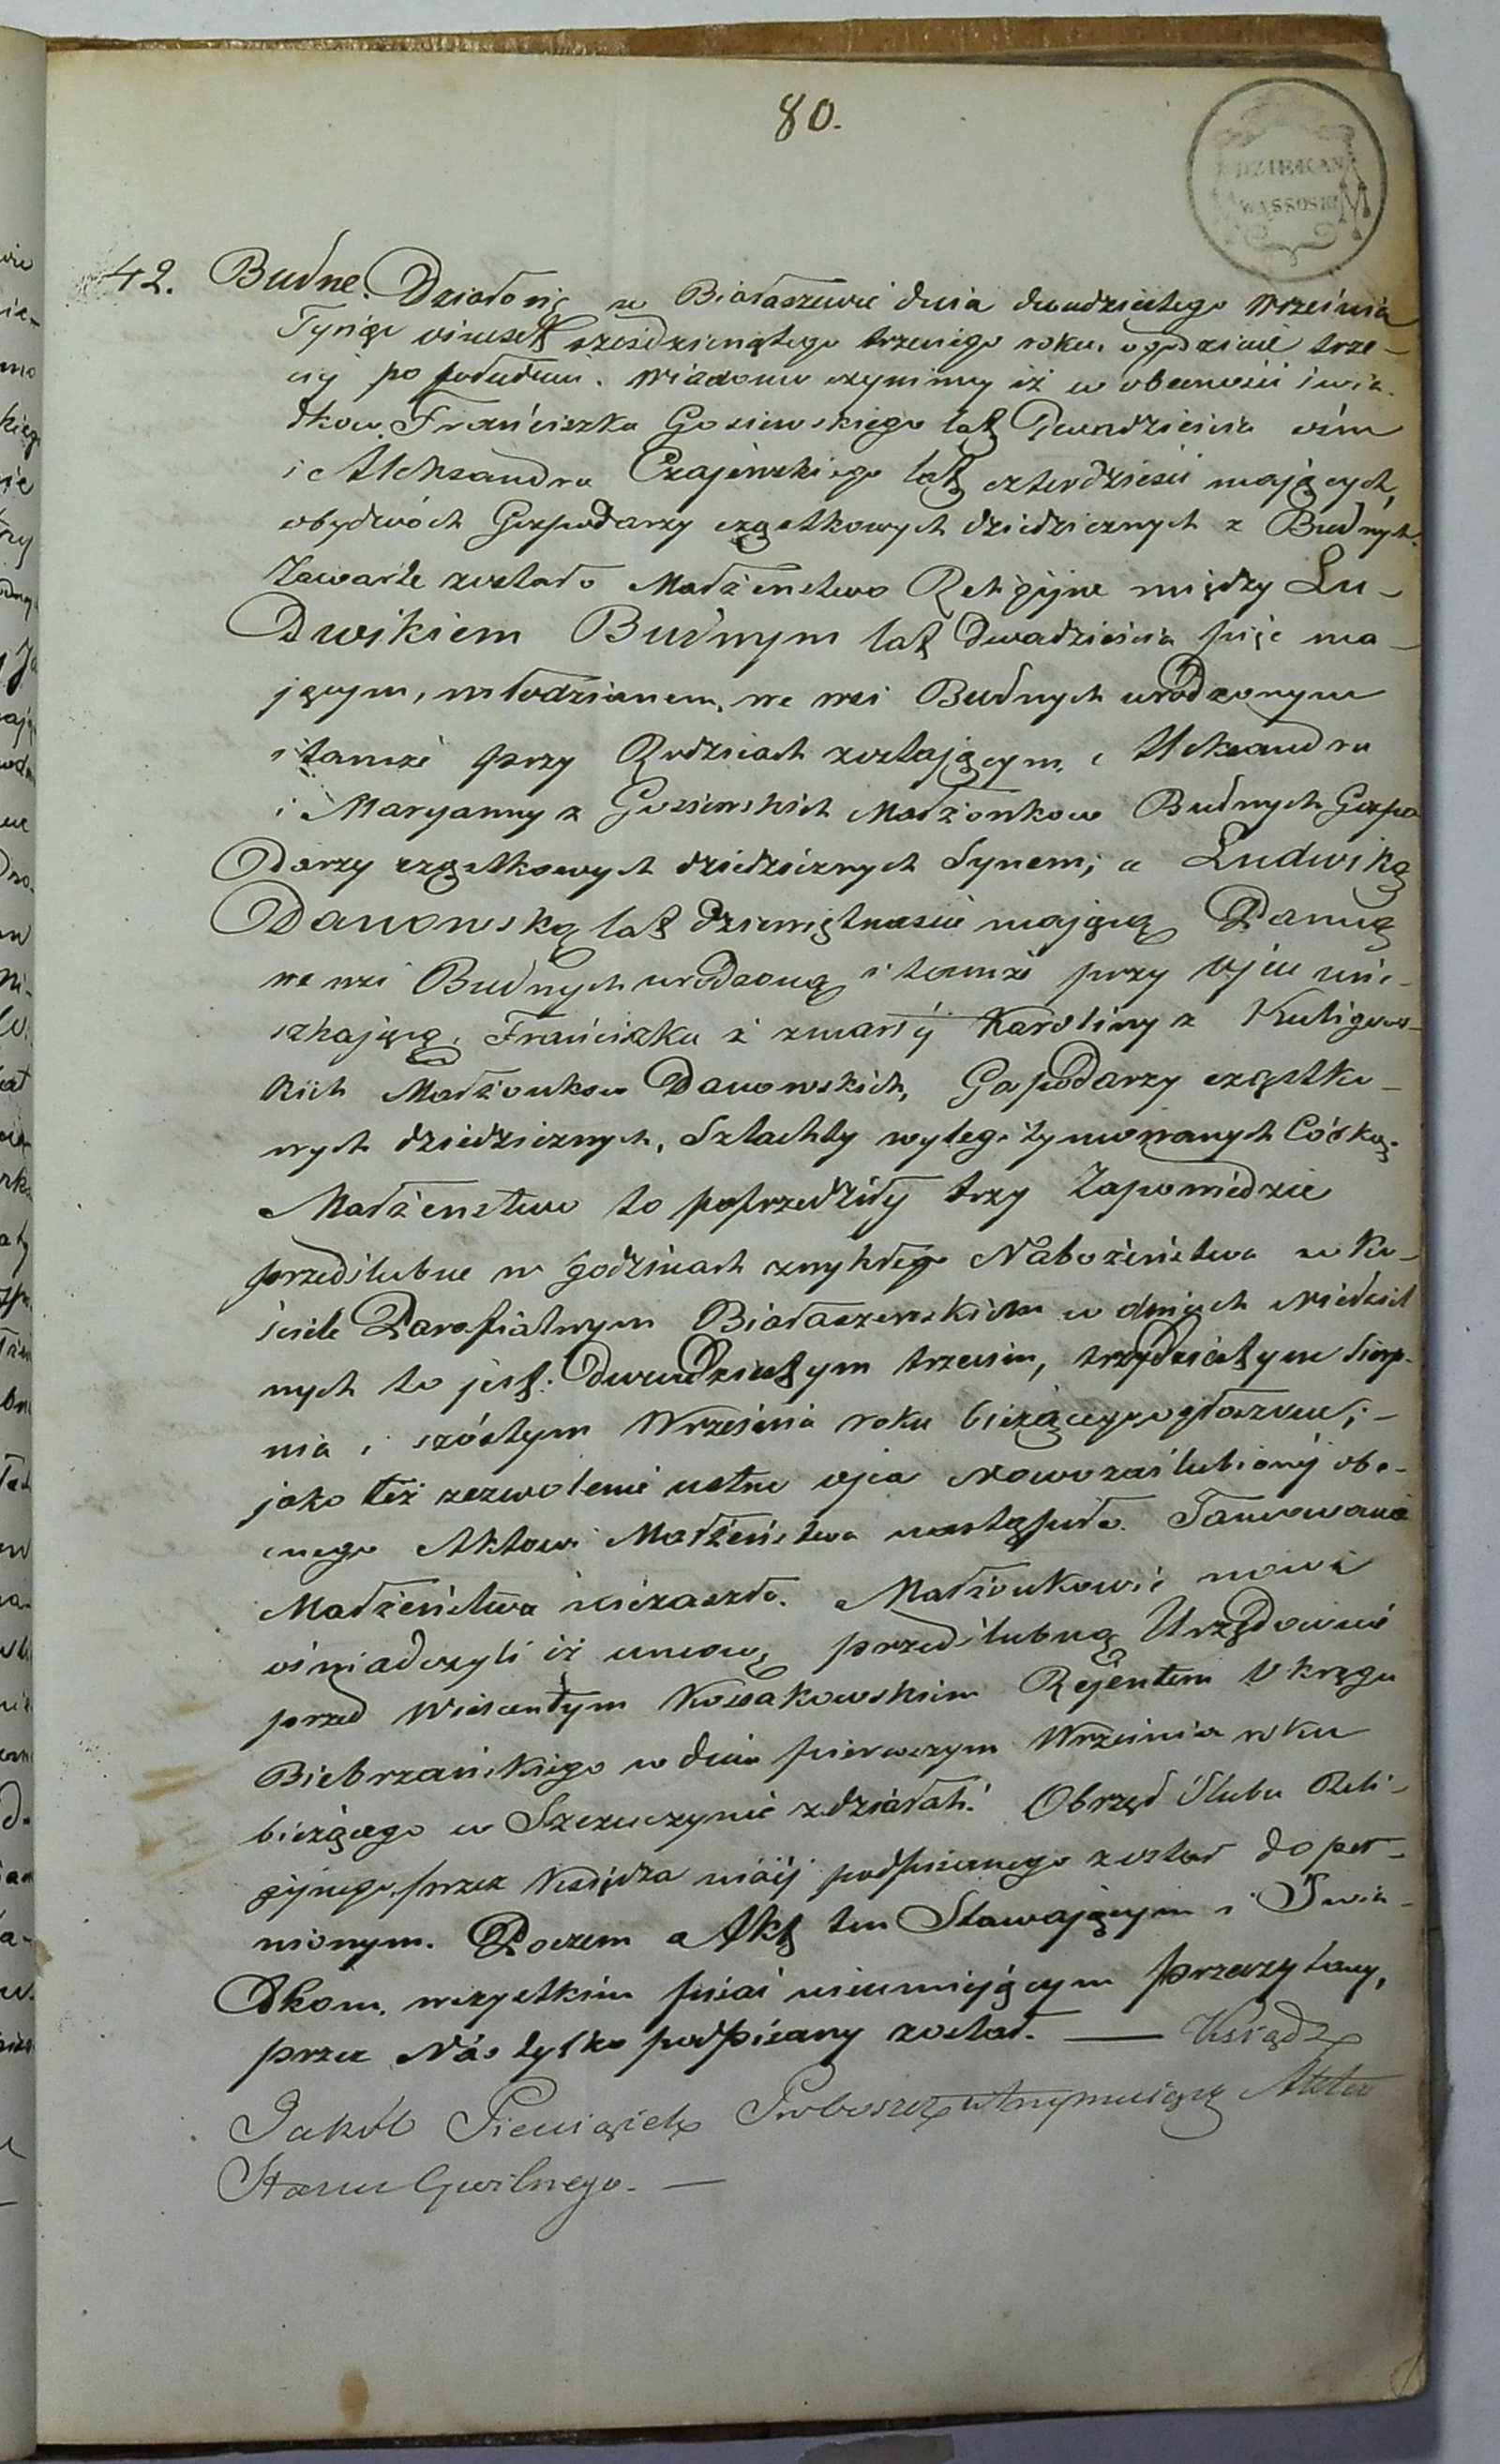 80.
DZIEKAN
WĄSSOSKI
42. Budne. Działo się w Białaszewie dnia dwudziestego Września
Tysiąc ośmset sześdziesiątego trzeciego roku, o godzinie trze-
ciej po południu. Wiadomo czynimy iż w obecności świa-
dkow Franciszka Gosiewskiego lat Dwadzieścia ośm
i Aleksandra Czajewskiego lat czterdzieści mających,
obydwóch Gospodarzy cząstkowych dziedzicznych z Budnych.
Zawarte zostało Małżeństwo Religijne między Lu-
Dwikiem Budnym lat Dwadzieścia pięc ma-
jącym, młodzianem, we wsi Budnych urodzonym
i tamże przy Rodzicach zostającym, Aleksandra
i Maryanny z Gosiewskich Małżonkow Budnych Gospo
Darzy cząstkowych dziedzicznych Synem; a Ludwiką
Danowską lat dziewiętnaście mającą Panną
we wsi Budnych urodzoną i tamże przy Ojcu mie-
szkającą, Franciszka i zmarłéj Karoliny z Kuligows-
kich Małżonkow Danowskich, Gospodarzy cząstko-
wych dziedzicznych, Szlachty wylegitymowanych Córką.
Małżeństwo to poprzedziły trzy Zapowiedzie
przedślubne w godzinach zwykłego Nabożeństwa w Ko-
ściele Parafialnym Białaszewskim w dniach Niedziel
nych to jest: Dwudziestym trzecim, trzydziestym Sierp-
nia i szóstym Września roku bieżącego ogłoszone; -
jako też zezwolenie ustne ojca Nowozaślubionéj obe-
cnego Aktowi Małżeństwa nastąpiło. Tamowanie
Małżeństwa niezaszło. Małżonkowie nowi
oświadczyli iż umowę przedślubną Urzędownie
przed Wincentym Kossakowskim Rejentem Okręgu
Biebrzańskiego w dniu pierwszym Września roku
bieżącego w Szczuczynie zdziałali. Obrzęd Ślubu Reli-
gijnego przez Księdza niżéj podpisanego został dopeł-
nionym. Poczem Akt ten Stawającym i Świa-
dkom, wszystkim pisać nieumiejącym przeczytany,
przez Nas tylko podpisany został. — Ksiądz
Jakób Pieniążek Proboszcz utrzymujący Akta
Stanu Cywilnego. —